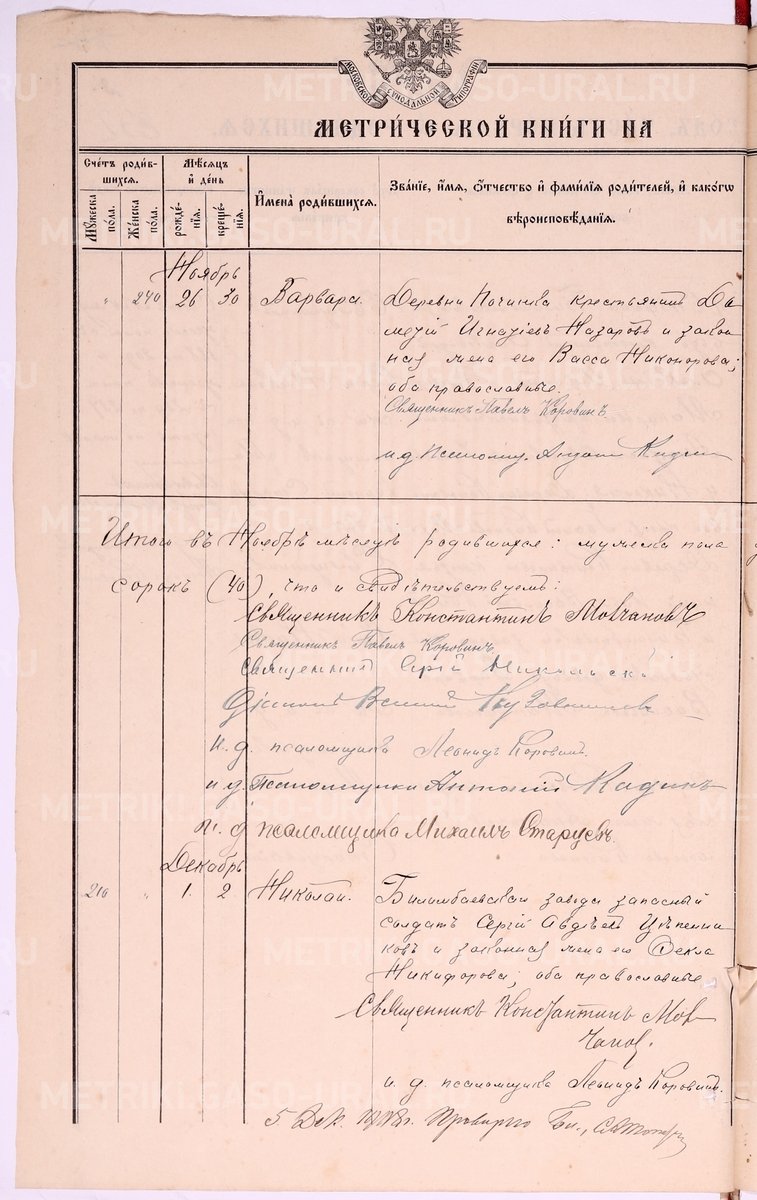 МОСКОВСКОЙ СѴНОДАЛЬНОЙ ТИПОГРАФІИ
МЕТРИ́ЧЕСКОЙ КНИ́ГИ НА
Сче́тъ роди́вшихсѧ.
Мꙋ́жеска по́ла.
Же́нска по́ла.
Мѣ́сѧцъ и҆ де́нь
рожде́нїѧ.
креще́нїѧ.
И҆мена̀ роди́вшихсѧ.
Зва́нїе, и҆́мѧ, ѻ҆́тчество и҆ фами́лїѧ роди́телей, и҆ како́гѡ
вѣроисповѣ́данїѧ.
Ноябрь
" 240 26 30 Варвара. Деревни Починка крестьянинъ Да
мецій Игнатіевъ Назаровъ и закон
ная жена его Васса Никонорова;
оба православные.
Священникъ Павелъ Коровинъ.
и.д. псаломщ. Антоній Кадинъ
Итого въ Ноябрѣ мѣсяцѣ родившихся: мужеска пола
сорокъ (40), что и свидѣтельствуемъ:
Священникъ Константинъ Молчановъ
Священникъ Павелъ Коровинъ.
Священникъ Сергій Никольскій
Діаконъ
и. д. псаломщика Леонидъ Коровинъ.
и. д. Псаломщика Антоній Кадинъ
и. д. псаломщика Михаилъ Старцевъ.
Декабрь
210 " 1. 2 Николай. Билимбаевскаго завода запасный
солдатъ Сергій Авдѣевъ Цѣпенни
ковъ и законная жена его Ѳекла
Никифорова; оба православные
Священникъ Константинъ Мол-
чановъ.
и. д. псаломщика Леонидъ Коровинъ.
5 Дек. 1918г. Проверено
METRIKI.GASO-URAL.RU